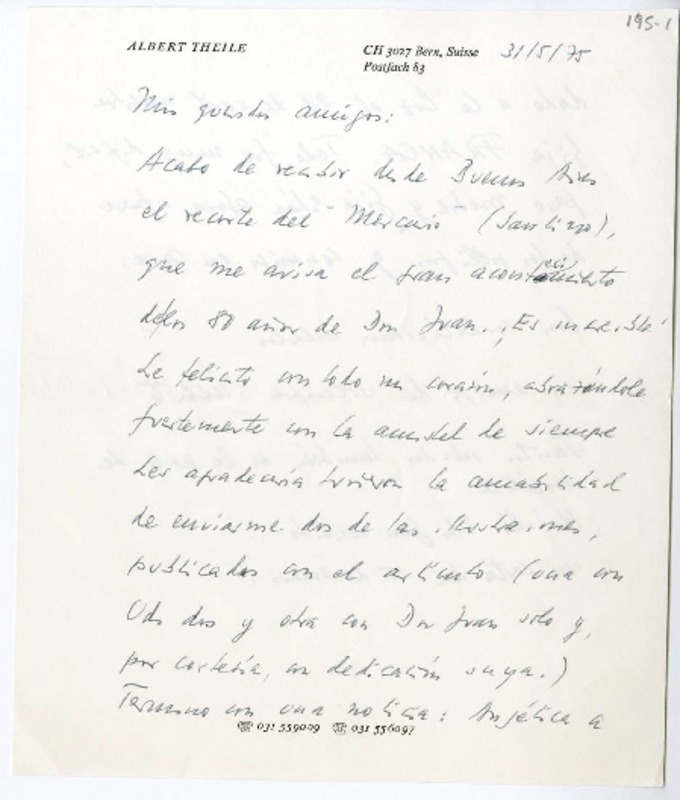 195-1
ALBERT THEILE
CH 3027 Bern, Suisse 31/5/75
Postfach 83
Mis queridos amigos:
Acabo de recibir desde Buenos Aires
el recorte del Mercurio (Santiago),
que me avisa el gran acontecimiento
de los 80 años de Don Juan. ¡Es increíble!
Le felicito con todo mi corazón, abrazándole
fuertemente con la amistad de siempre
Les agradecería tuvieran la amabilidad
de enviarme dos de las ilustraciones,
publicados con el artículo (una con
Uds dos y otra con Don Juan solo y,
por cortesía, con dedicación suya.)
Termino con una noticia: Angélica a
☎ 031 559029 ☎ 031 556097